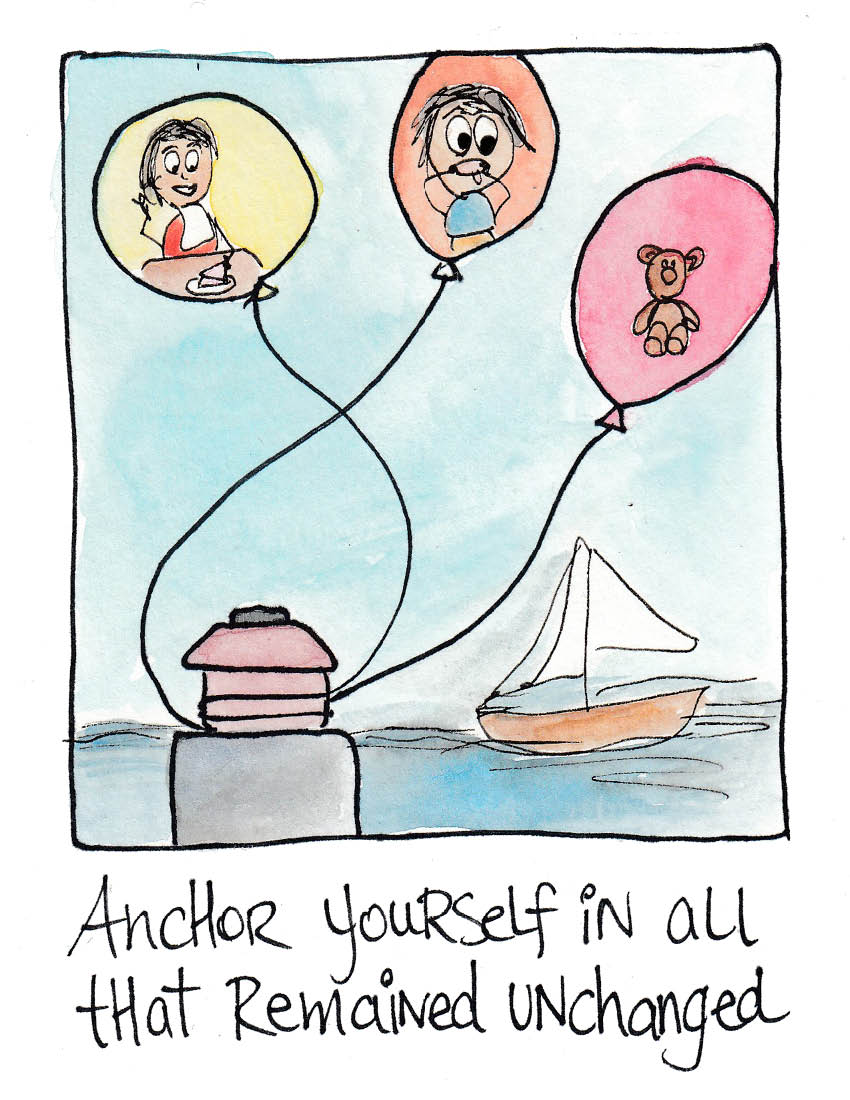 Anchor yourself in all
that Remained unchanged